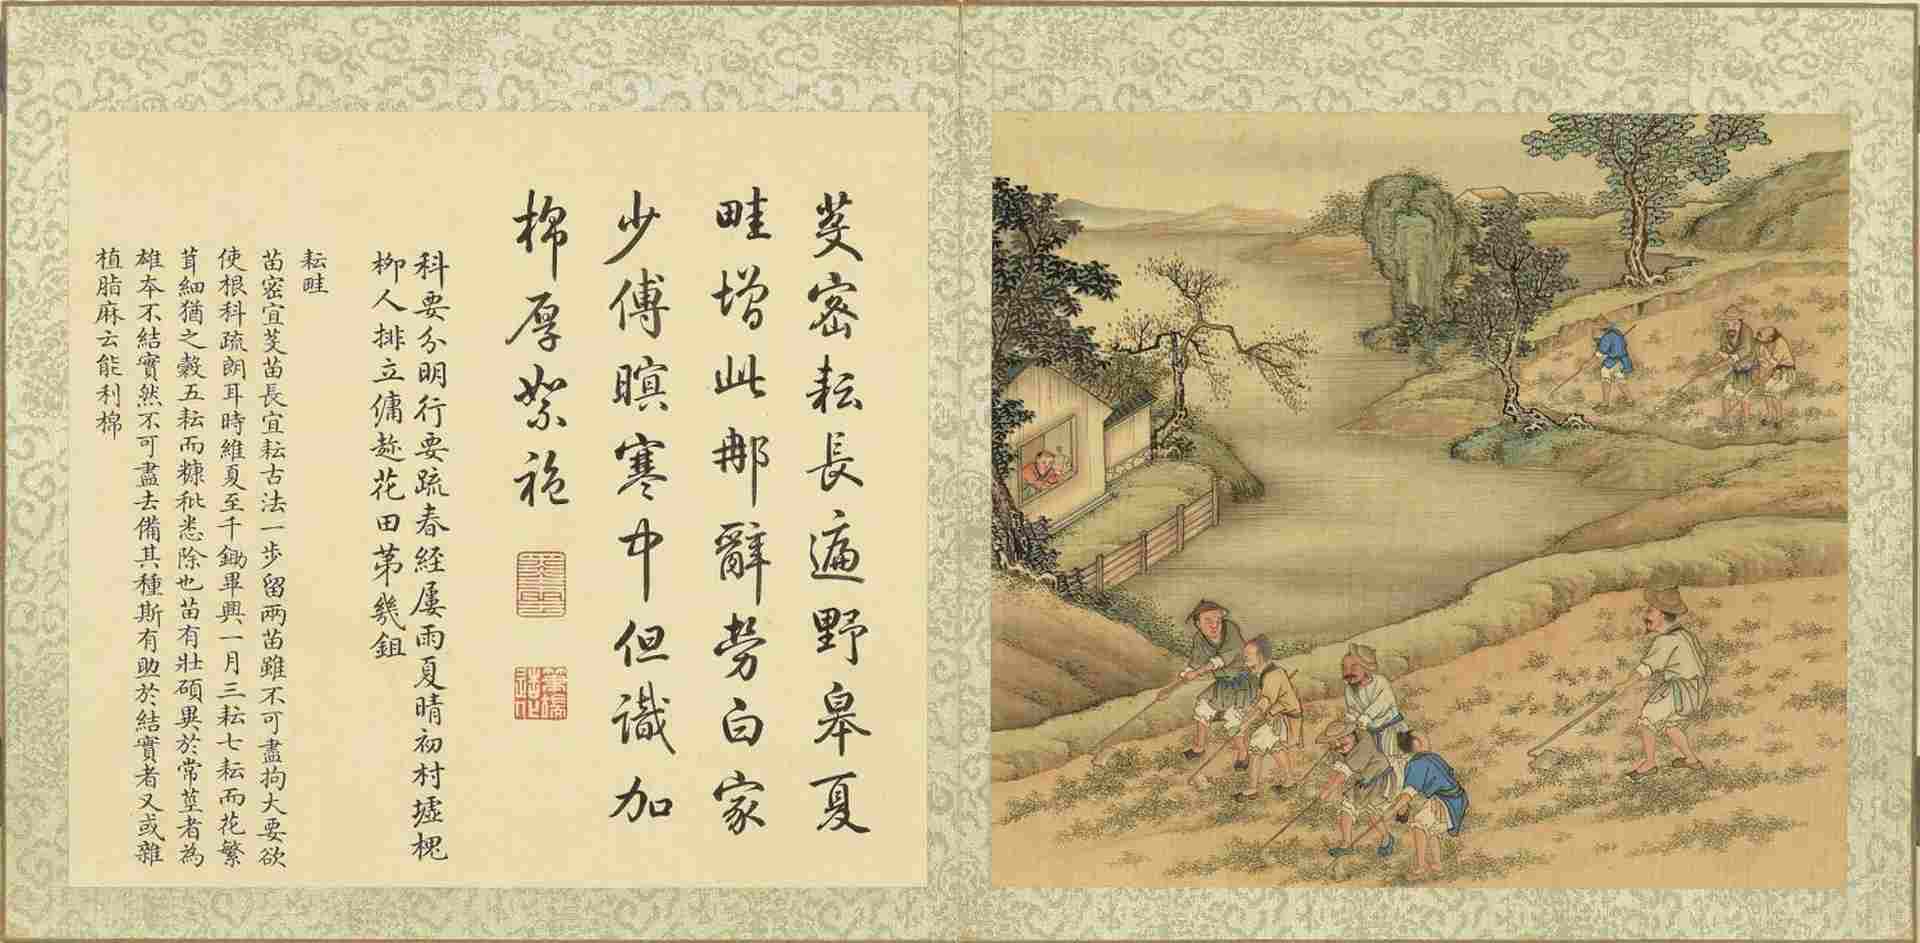 芟密耘長遍野皋夏
畦增此那辭勞白家
少傅暝寒中但識加
棉厚絮袍
科要分明行要疏春經屢雨夏晴初村墟槐
柳人排立傭趂花田第幾鉏
耘畦
苗密宜芟苗長宜耘古法一步留兩苗雖不可盡拘大要欲
使根科疏朗耳時維夏至千鋤畢興一月三耘七耘而花繁
茸細猶之穀五耘而糠秕悉除也苗有壯碩異於常莖者為
雄本不結實然不可盡去備其種斯有助於結實者又或雜
植脂麻云能利棉